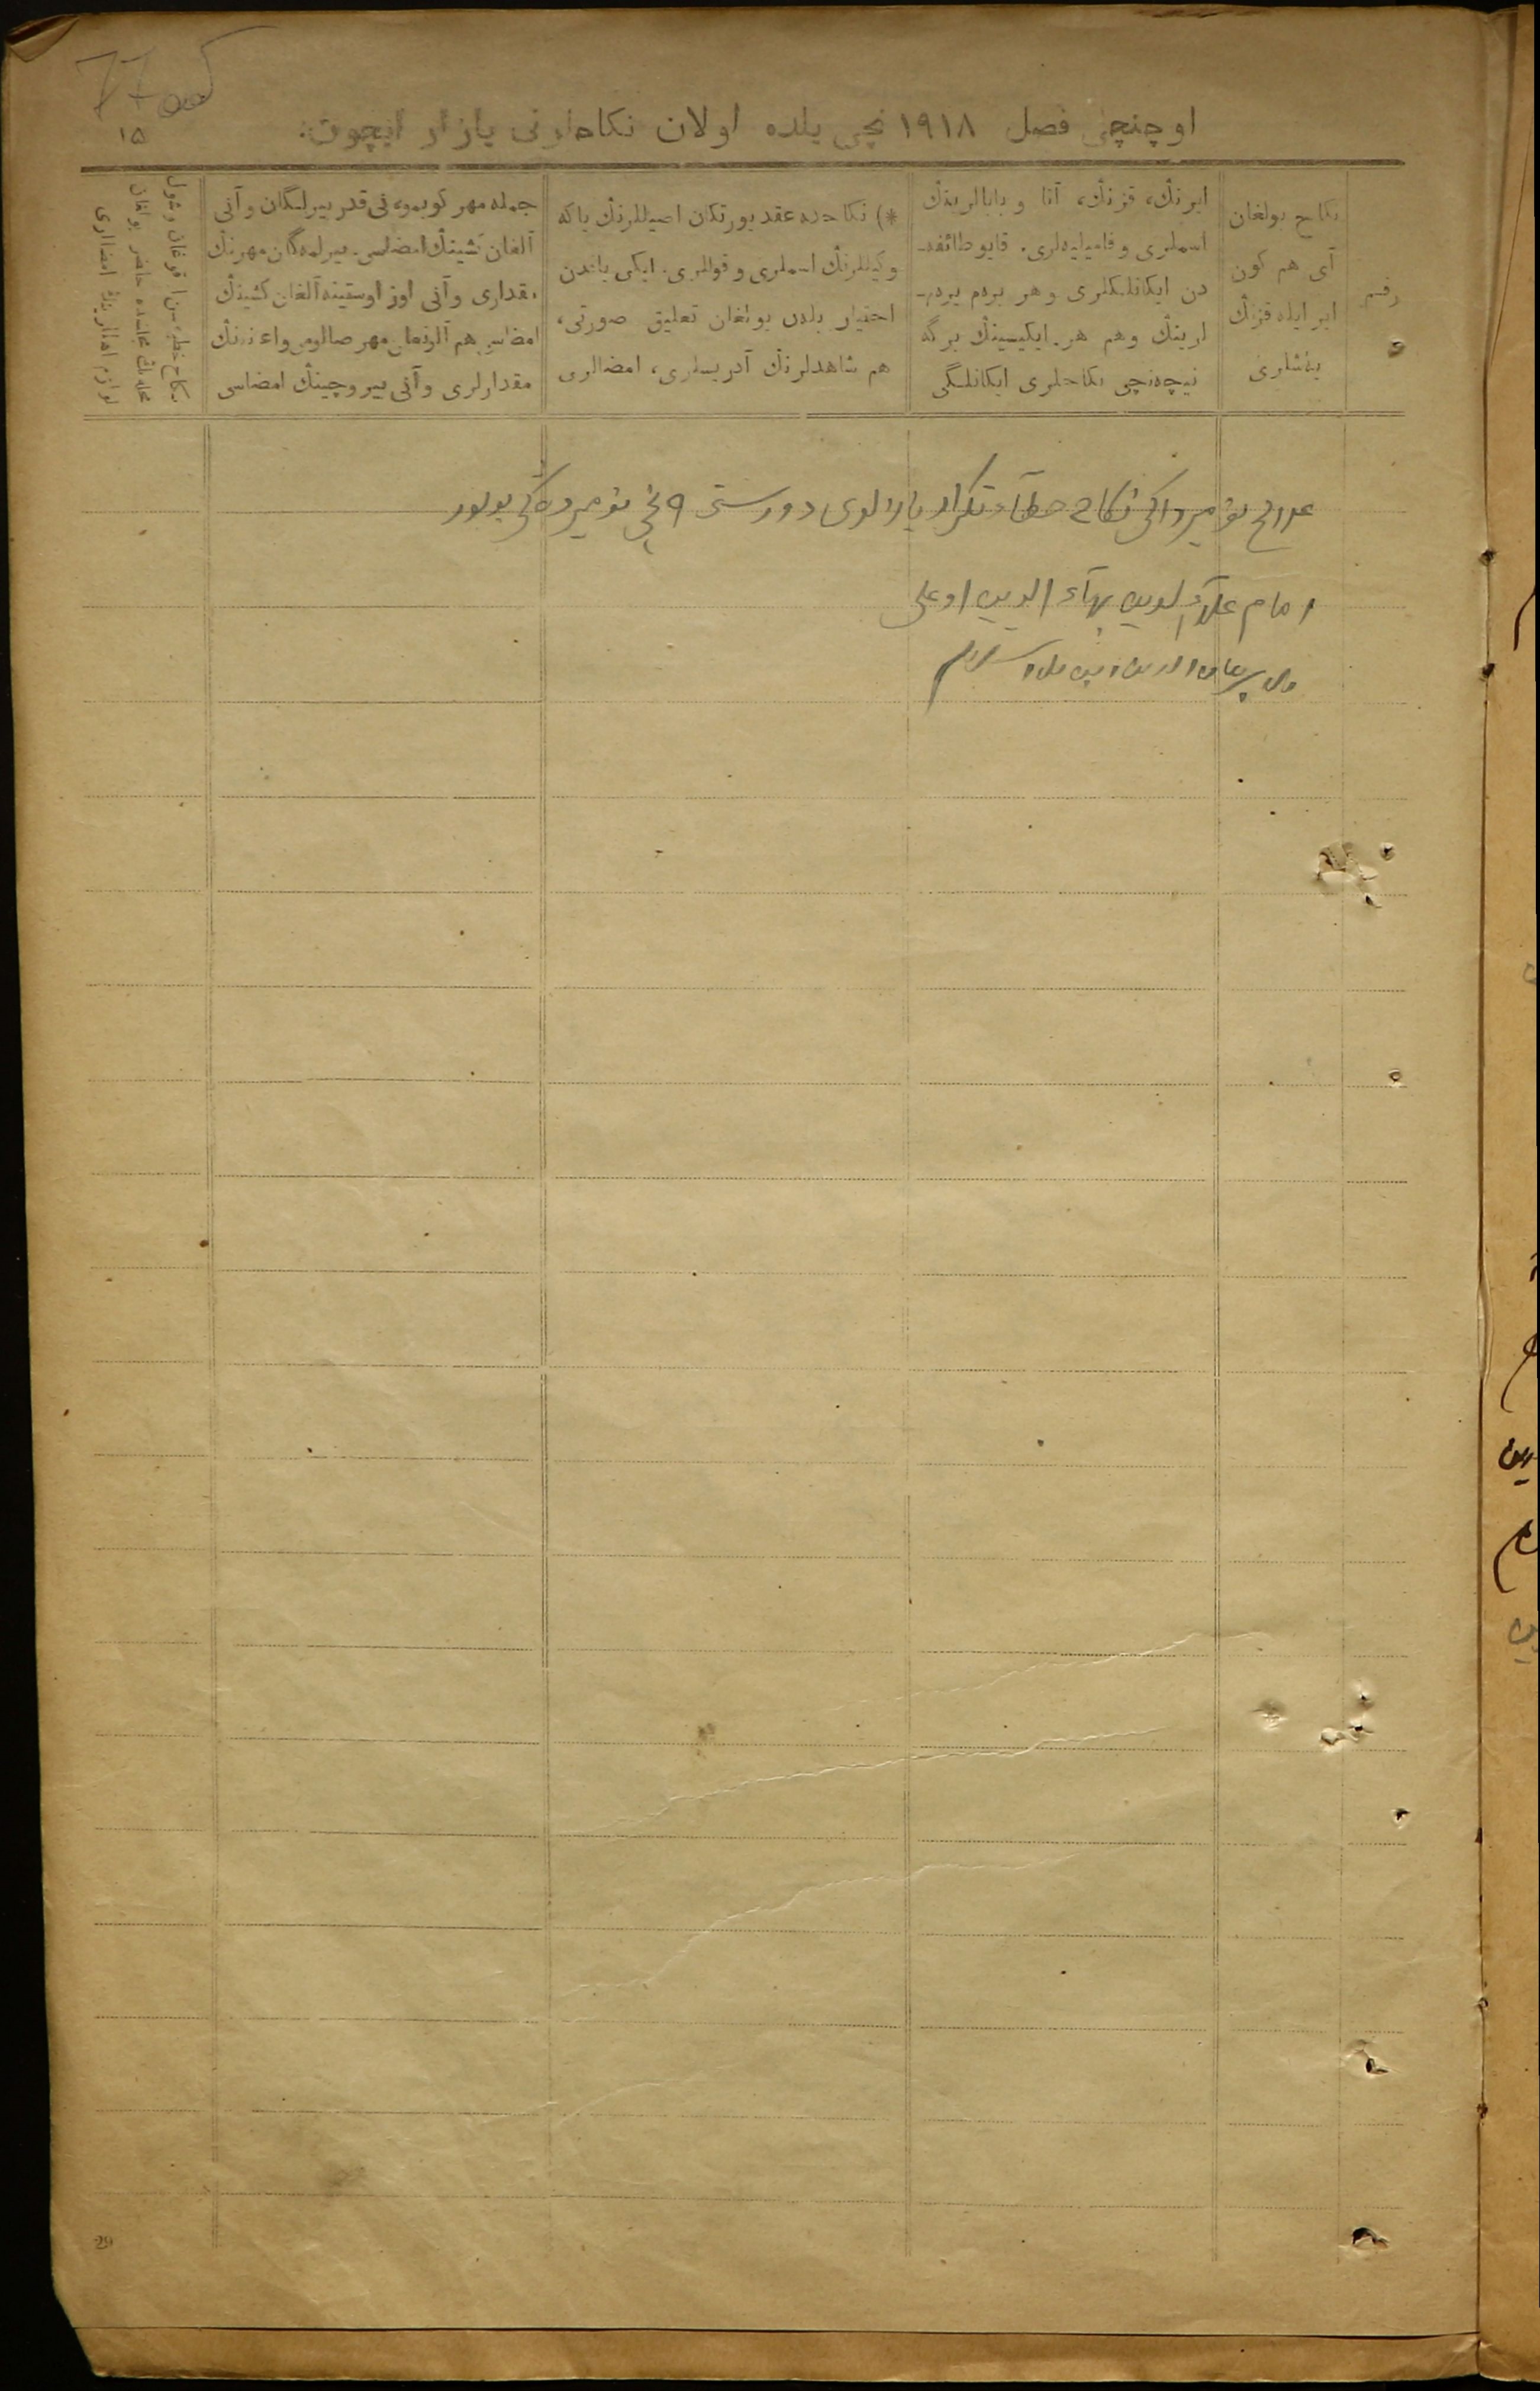 77об
۱۵
اوچنچی فصل ۱۹۱۸ نچی یلده اولان نکاحلرنی یازار ایچون.
رقم
نکاح بولغان
آی هم کون
ایر ایله قزنڭ
یاشلری
ایرنڭ، قزنڭ، آتا و بابالرینڭ
اسملری و فامیلیه‌لری. قایو طائفه‌ـ
دن ایکانلکلری و هر بردم بردم‌ـ
لرینڭ وهم هر ایکیسینڭ برگه
نیچه‌نچی نکاحلری ایکانلگی
*) نکاحده عقد یورتکان اصیللرنڭ یاکه
وکیللرنڭ اسملری و قوللری. ایکی یاندن
اختیار بلان بولغان تعلیق صورتی،
هم شاهدلرنڭ آدریسلری، امضالری
جمله مهر کوبمو، نی قدر بیرلگان و آنی
آلغان کشینڭ امضاسی. بیرلمه‌گان مهرنڭ
مقداری و آنی اوز اوستینه آلغان کشینڭ
امضاسی هم آلنغان مهر صالومی واعذرنڭ
مقدارلری و آنی بیروچینڭ امضاسی
نکاح خطبه‌سن اوقوغان وشول
مجلسده حاضر بولغان
امضالری
نومیرداکی نکاح خطآء تکرار یازالدی دورستی ۹ نچی نومیرده‌کی بولور
امام علآء الدین بهآء الدین اوغلی
29